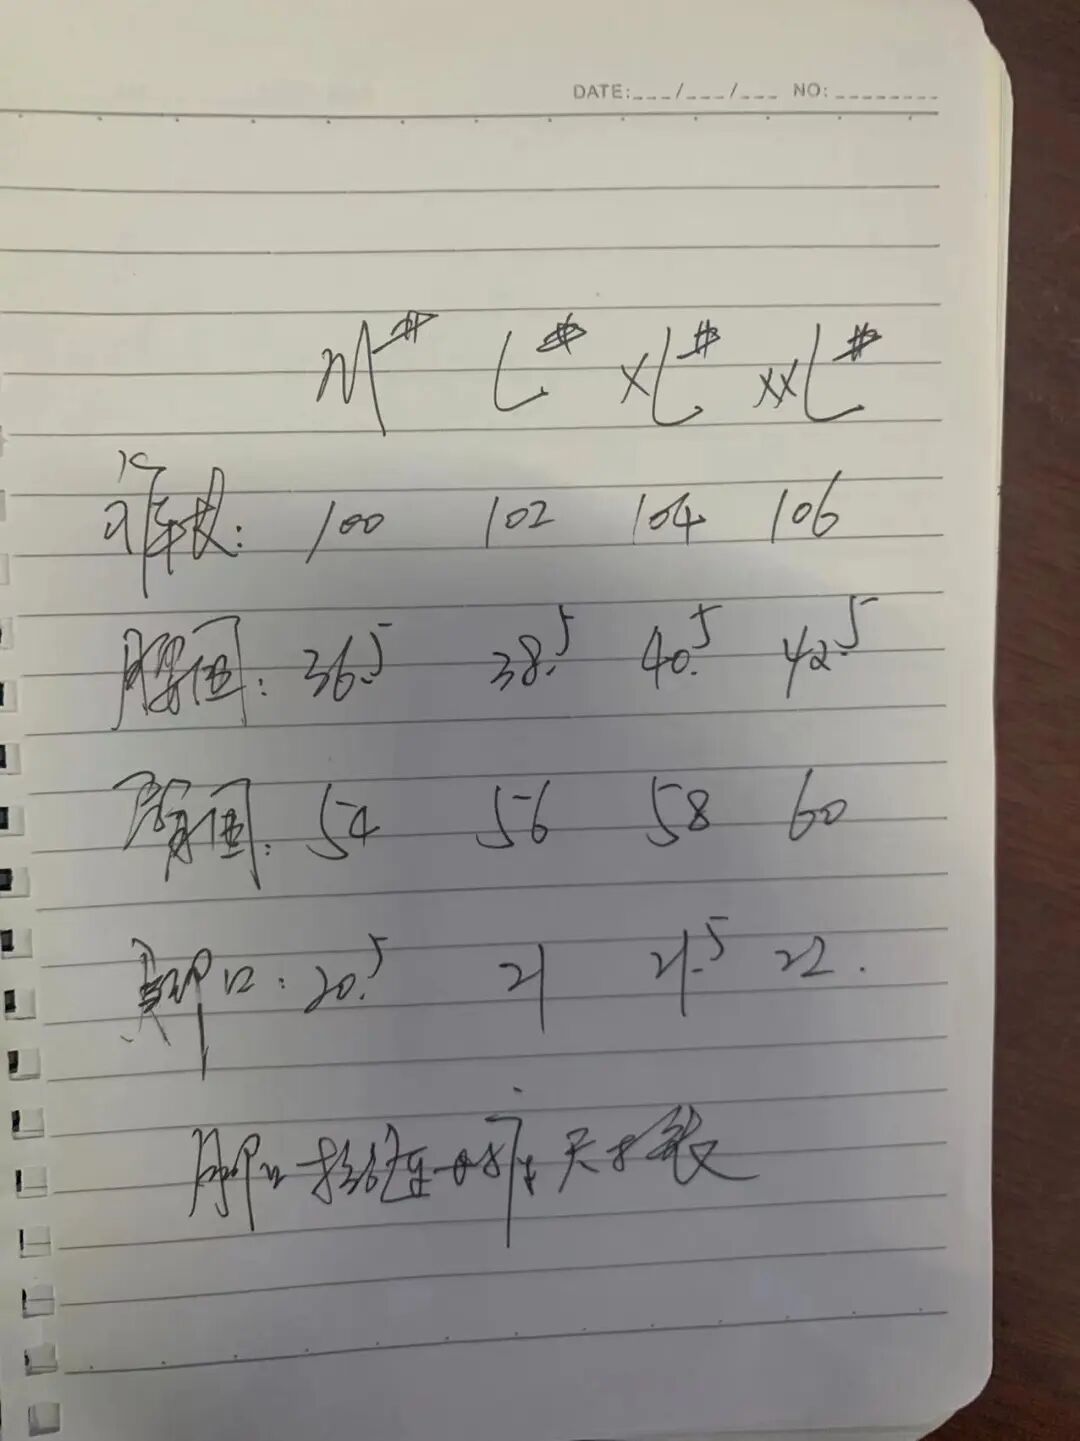 DATE:___/___/___ NO:________
M# L# XL# XXL#
裤长: 100 102 104 106
腰围: 36.5 38.5 40.5 42.5
臀围: 54 56 58 60
脚口: 20.5 21 21.5 22.
脚口